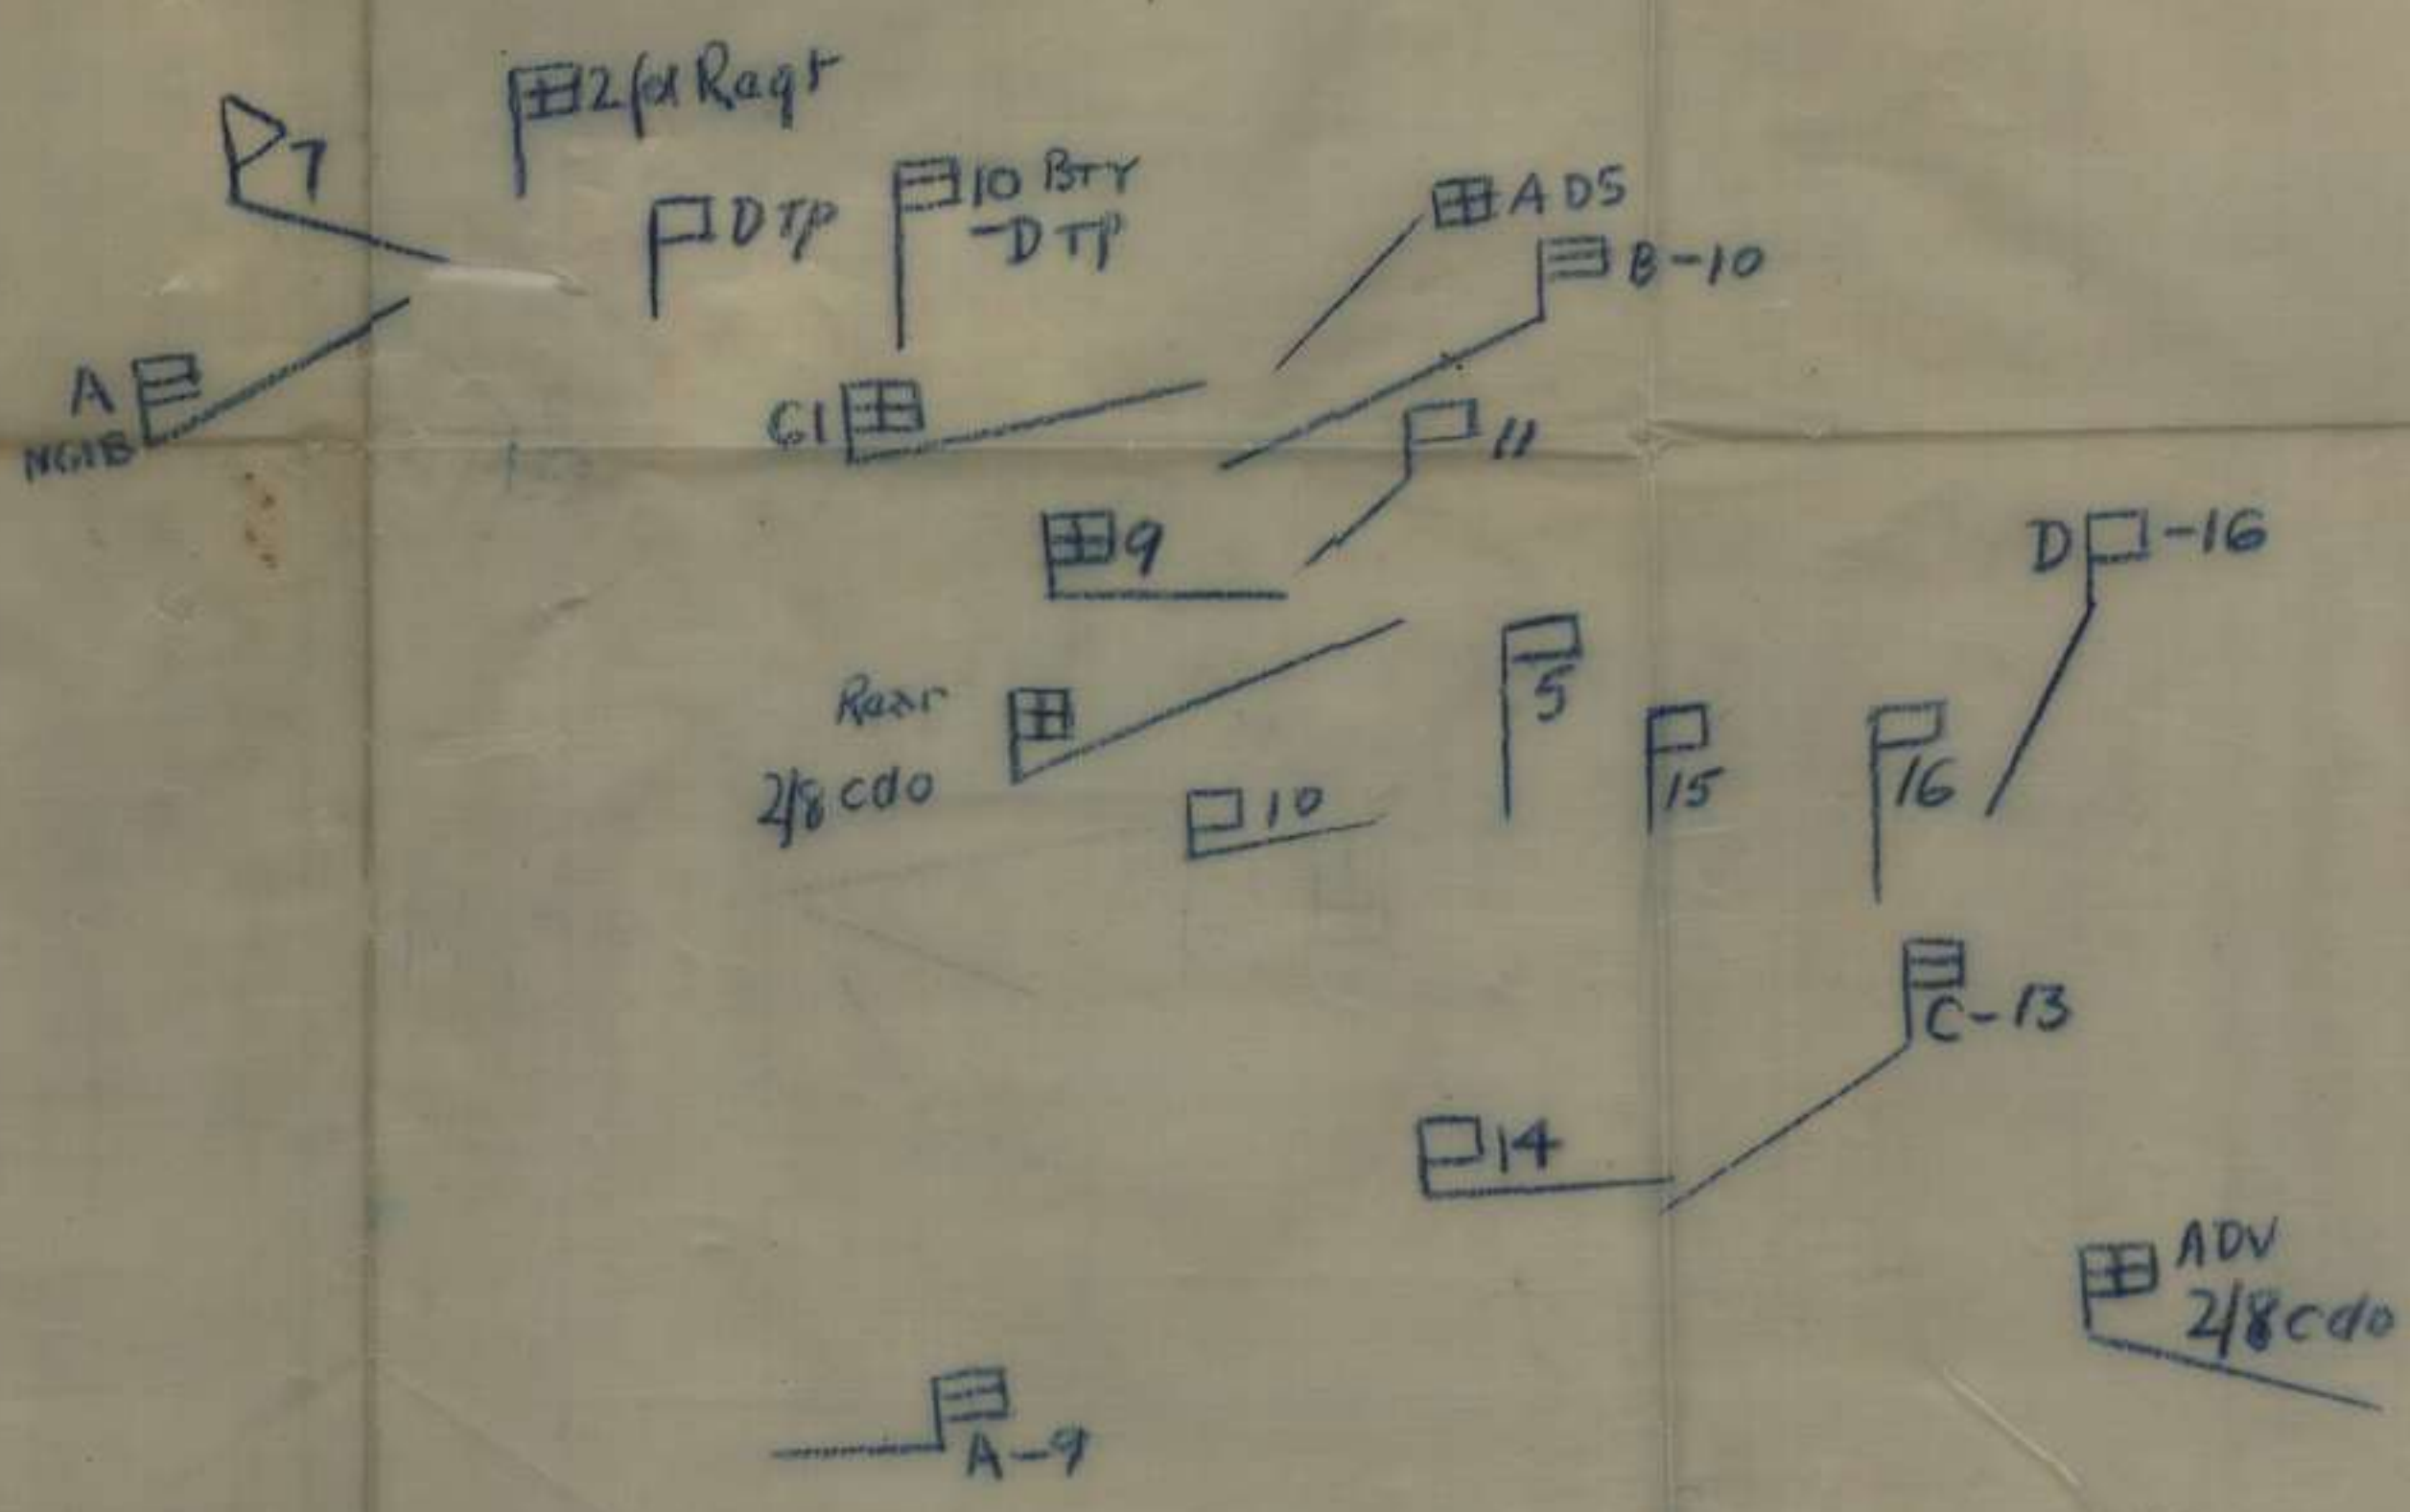 2/fd Regt
7
DTP
10 BTY
-DTP
ADS
B-10
A
NGIB
61
11
9
D -16
Rear
2/8 cdo
5
15
16
10
C-13
14
ADV
2/8 cdo
A-9